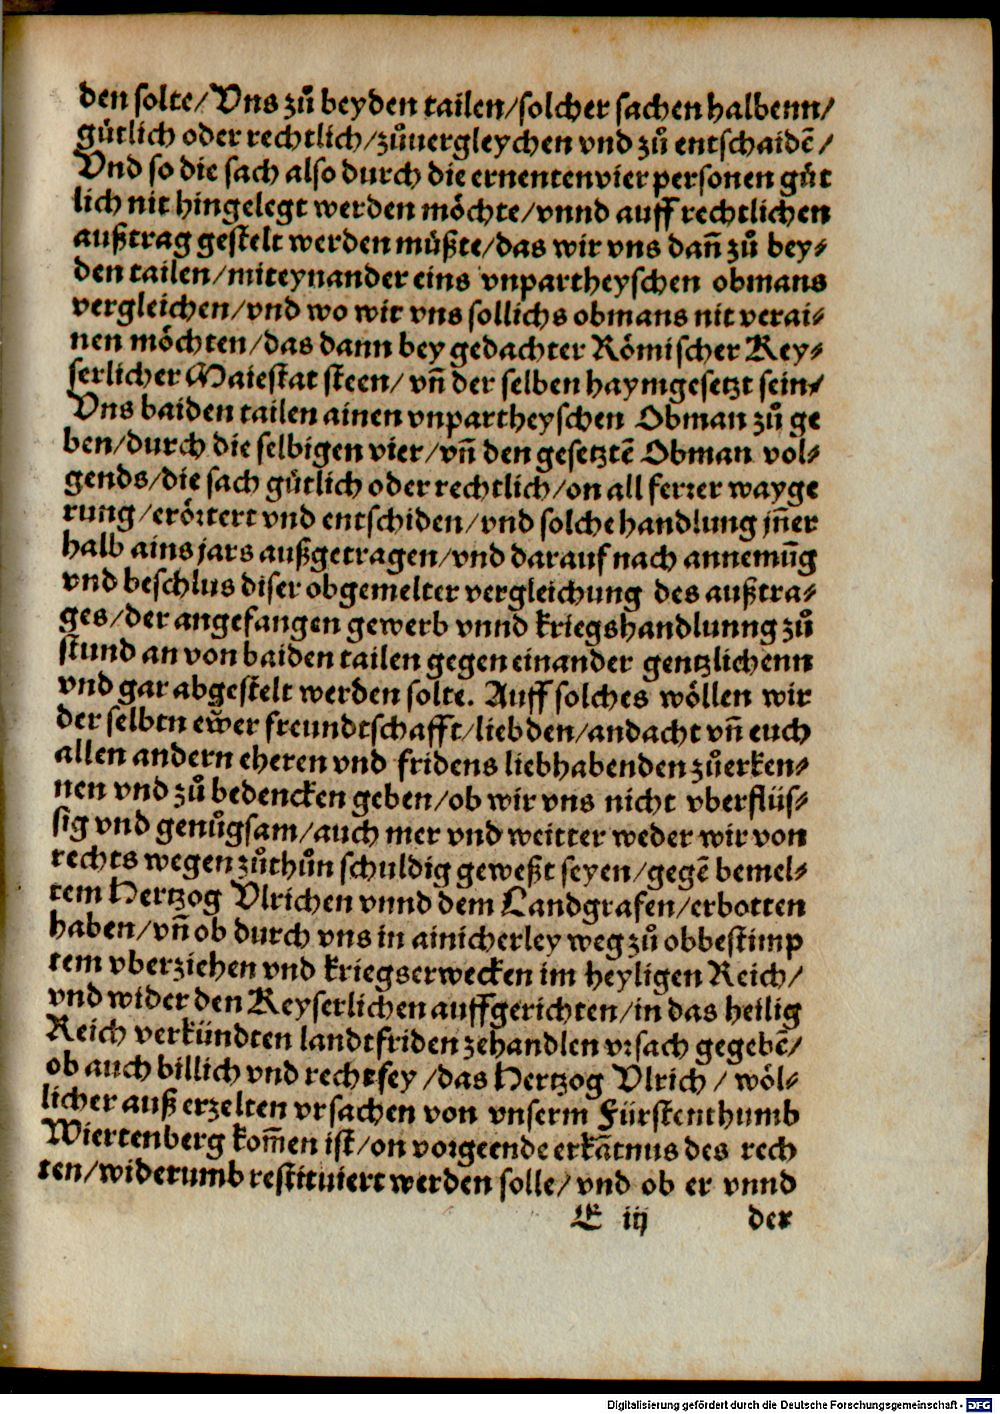 den solte/Vns zů beyden tailen/solcher sachen halbenn/
gütlich oder rechtlich/zůuergleychen vnd zů entschaidẽ/
Vnd so die sach also durch die ernenten vier personen güt
lich nit hingelegt werden möchte/vnnd auff rechtlichen
außtrag gestelt werden müßte/das wir vns dañ zů bey⸗
den tailen/miteynander eins vnpartheyschen obmans
vergleichen/vnd wo wir vns sollichs obmans nit verai⸗
nen möchten/das dann bey gedachter Römischer Key⸗
serlicher Maiestat steen/vñ der selben haymgesetzt sein/
Vns baiden tailen ainen vnpartheyschen Obman zů ge
ben/durch die selbigen vier/vñ den gesetztẽ Obman vol⸗
gends/die sach gütlich oder rechtlich/on all ferrer wayge
rung/erörtert vnd entschiden/vnd solche handlung jñer
halb ains jars außgetragen/vnd darauf nach annemũg
vnd beschlus diser obgemelter vergleichung des außtra⸗
ges/der angefangen gewerb vnnd kriegshandlunng zů
stund an von baiden tailen gegen einander gentzlichenn
vnd gar abgestelt werden solte. Auff solches wöllen wir
der selbtn ewer freundtschafft/liebden/andacht vñ euch
allen andern eheren vnd fridens liebhabenden zůerken⸗
nen vnd zů bedencken geben/ob wir vns nicht vberflüs⸗
sig vnd genůgsam/auch mer vnd weitter weder wir von
rechts wegen zůthůn schuldig geweßt seyen/gegẽ bemel⸗
tem Hertzog Vlrichen vnnd dem Landgrafen/erbotten
haben/vñ ob durch vns in ainicherley weg zů obbestimp
tem vberziehen vnd kriegserwecken im heyligen Reich/
vnd wider den Keyserlichen auffgerichten/in das heilig
Reich verkündten landtfriden zehandlen vrsach gegebẽ/
ob auch billich vnd recht sey/das Hertzog Vlrich/wöl⸗
licher auß erzelten vrsachen von vnserm Fürstenthumb
Wiertenberg kom̃en ist/on vorgeende erkãtnus des rech
ten/widerumb restituiert werden solle/vnd ob er vnnd
E iij der
Digitalisierung gefördert durch die Deutsche Forschungsgemeinschaft - DFG